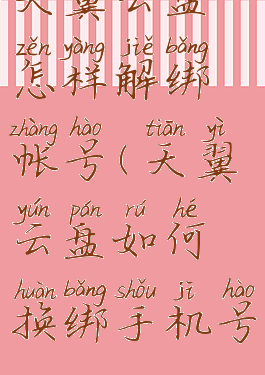 天翼云盘
zěn yàng jiě bǎng
怎样解绑
zhàng hào tiān yì
帐号(天翼
yún pán rú hé
云盘如何
huàn bǎng shǒu jī hào
换绑手机号